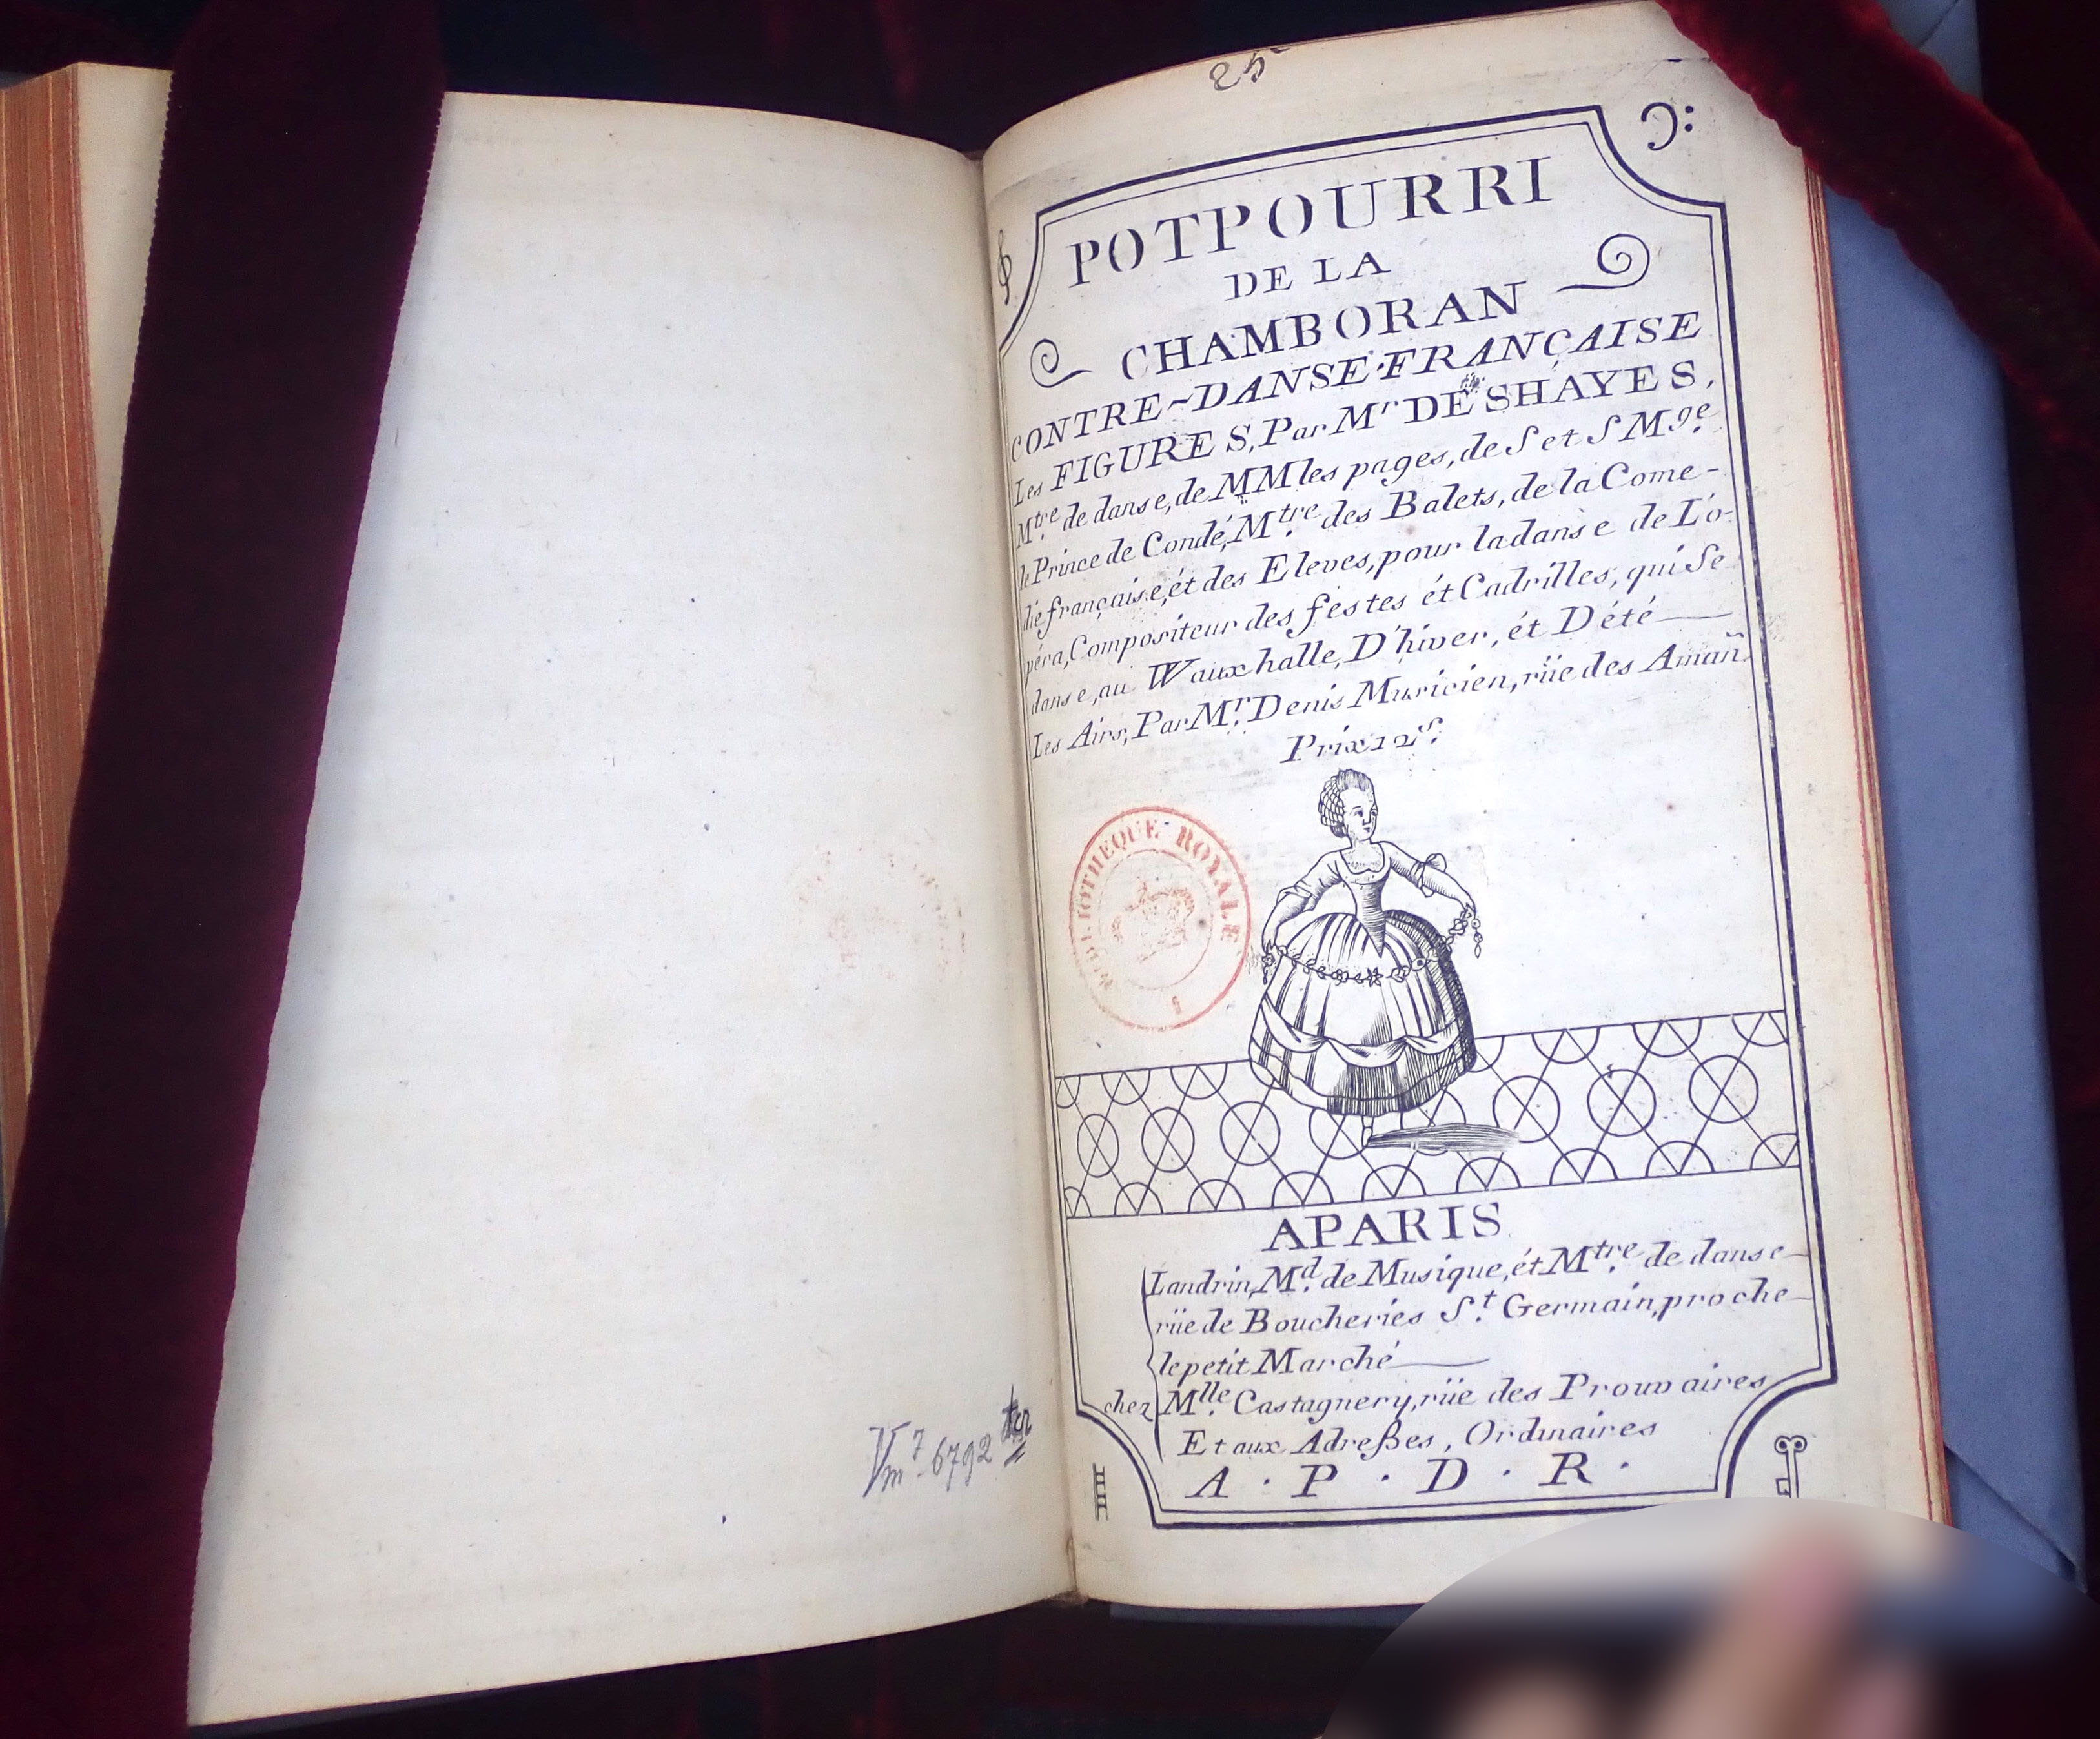 Vm 7 6792 ter
25
POTPOURRI
DE LA
CHAMBORAN
CONTRE-DANSE·FRANÇAISE
Les FIGURES, Par Mr DESHAYES,
Mtre de danse, de MM les pages, de S et S Mge.
le Prince de Condé, Mtre des Balets, de la Come-
die française, ét des Eleves, pour la danse de L'o-
péra, Compositeur des festes ét Cadrilles, qui Se
danse, au Wauxhalle, D'hiver, ét D'été
Les Airs, Par Mr. Denis Musicien, rüe des Amañ.
Prix 12 s.
BIBLIOTHEQUE ROYALE
APARIS
Landrin, Md. de Musique, ét Mtre. de danse
rüe de Boucheries St. Germain, proche
le petit Marché
chez Mlle. Castagnery, rüe des Prouvaires
Et aux Adreßes, Ordinaires
A · P · D · R ·